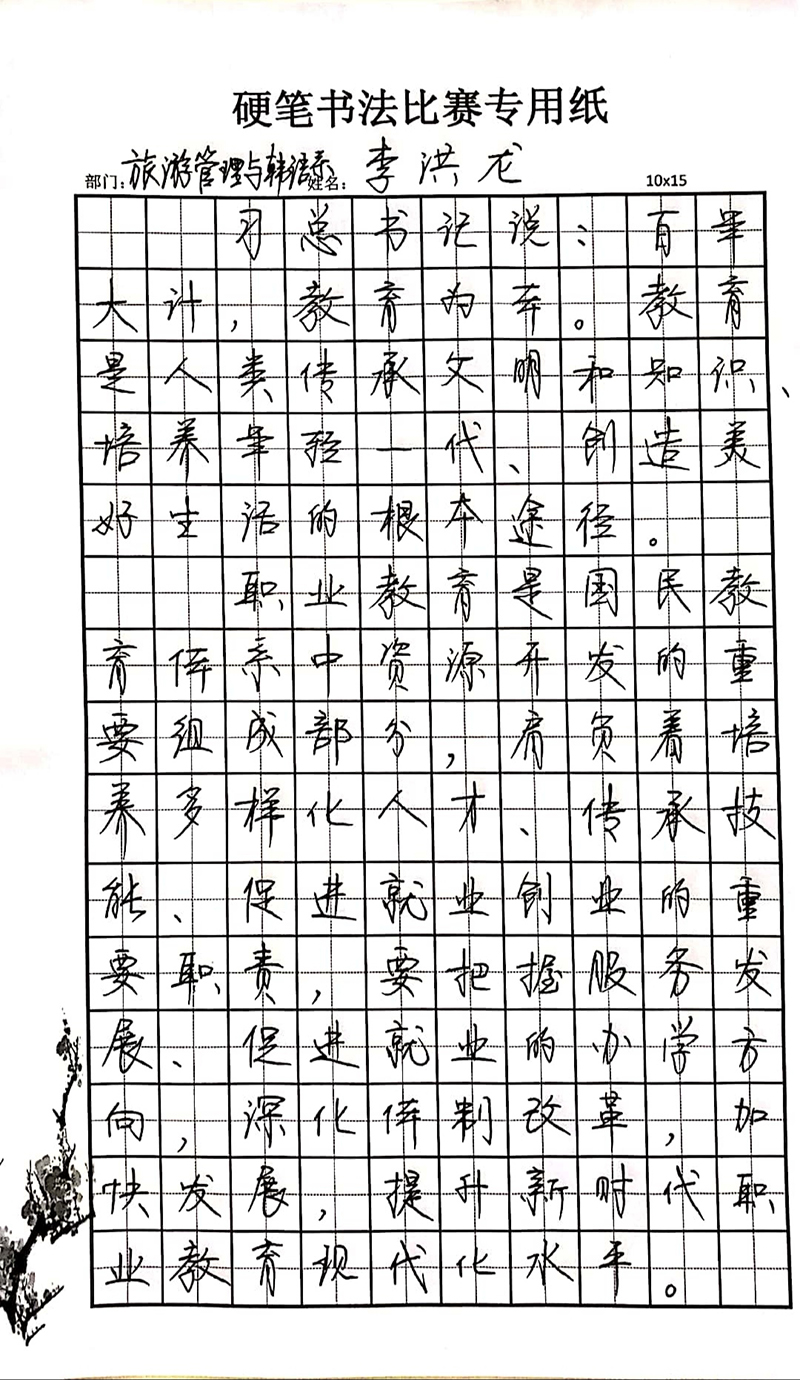 硬笔书法比赛专用纸
部门：旅游管理与韩语系 姓名：李洪龙 10x15
习总书记说：百年
大计，教育为本。教育
是人类传承文明和知识、
培养年轻一代、创造美
好生活的根本途径。
职业教育是国民教
育体系中资源开发的重
要组成部分，肩负着培
养多样化人才、传承技
能、促进就业创业的重
要职责，要把握服务发
展、促进就业的办学方
向，深化体制改革，加
快发展，提升新时代职
业教育现代化水平。